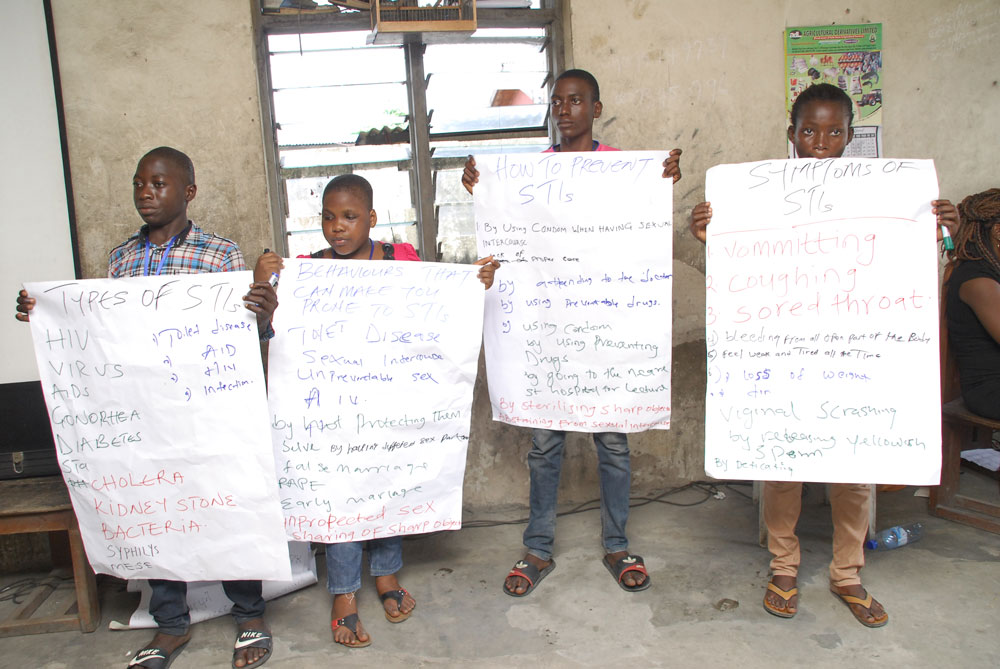 TYPES OF STIs
HIV
VIRUS
AIDs
GONORHEA
DIABETES
STa
CHOLERA
KIDNEY STONE
BACTERIA.
SYPHILYS
MESE
Toilet disease
AID
infection.
BEHAVIOURS THAT
CAN MAKE YOU
PRONE TO STIs
TOILET DISEASE
Sexual Intercourse
UnPreventable sex
by not Protecting them
by having different sex partner
false marriage
RAPE
Early mariage
Unpropected sex
sharing of sharp object
HOW TO PREVENT
STIs
By USING CONDOM WHEN HAVING SEXUAL
INTERCOURSE
lack of proper care
by attending to the doctor
by using Preventable drugs.
using condom
by using Preventing
Drugs
by going to the neare
st hospital for lecture
By sterilising sharp object
Abstaining from sexual intercourse
SYMPTOMS OF
STIs
1 Vommitting
2 Coughing
3 Sored throat.
4) bleeding from all open part of the Body
5) Feel weak and Tired all the Time
6) Loss of weight
Viginal Scrashing
by releasing yellowish
Sperm
AGRICULTURAL DERIVATIVES LIMITED
NIKE
NIKE